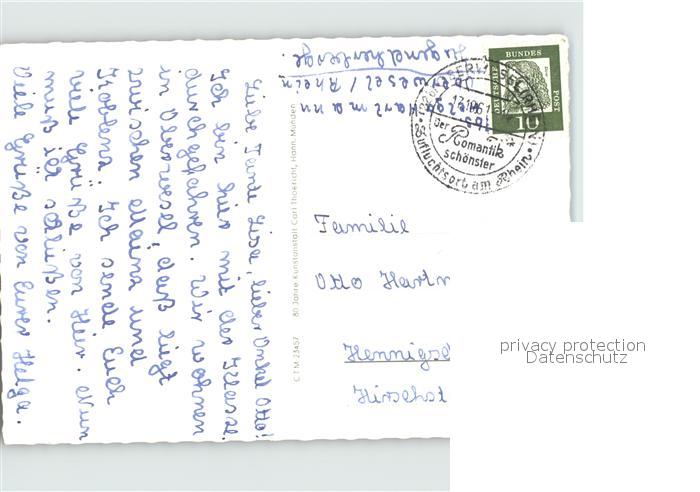 Liebe Tante Lisa, lieber Onkel Otto!
Ich bin hier mit der Klasse
durchgefahren. Wir wohnen
in Oberwesel, daß liegt
zwischen Mainz und
Koblenz. Ich sende Euch
viele Grüße von Hier. Nun
muß ich schließen.
Viele Grüße von Eurer Helga.
Abs. Helga Hartmann
Oberwesel/Rhein
Jugendherberge.
C.T.M. 23457 80 Jahre Kunstanstalt Carl Thoericht, Hann. Münden
DEUTSCHE
BUNDES
POST
10
Der
Romantik
schönster
Zufluchtsort am Rhein
Familie
Otto Hartm
Hennigsd
Hirschst
privacy protection
Datenschutz